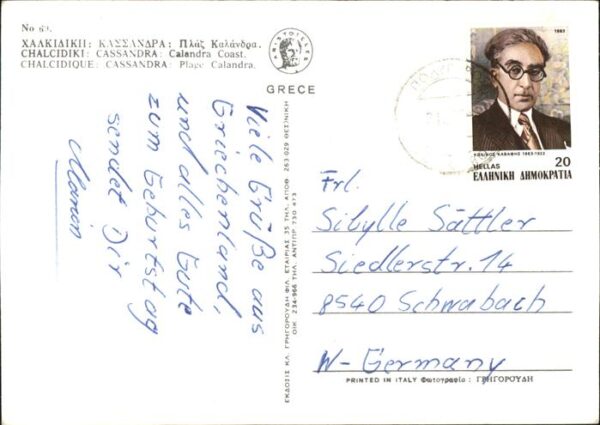 No 69.
ΧΑΛΚΙΔΙΚΗ: ΚΑΣΣΑΝΔΡΑ: Πλάζ Καλάνδρα.
CHALCIDIKI: CASSANDRA: Calandra Coast.
CHALCIDIQUE: CASSANDRA: Place Calandra.
GRECE
Viele Grüße aus
Griechenland,
und alles Gute
zum Geburtstag
sendet Dir
Manon
ΕΚΔΟΣΙΣ ΚΛ. ΓΡΗΓΟΡΟΥΔΗ ΦΙΛ. ΕΤΑΙΡΙΑΣ 35 ΤΗΛ. ΑΠΟΘ. 263-029 ΘΕΣ/ΝΙΚΗ
ΟΙΚ. 234-966 ΤΗΛ. ΑΝΤΙΠΡ. 730 473
1983
ΚΩΝ/ΝΟΣ ΚΑΒΑΦΗΣ 1863-1933
HELLAS 20
ΕΛΛΗΝΙΚΗ ΔΗΜΟΚΡΑΤΙΑ
Frl.
Sibylle Sättler
Siedlerstr. 14
8540 Schwabach
W-Germany
PRINTED IN ITALY Φωτογραφία: ΓΡΗΓΟΡΟΥΔΗ